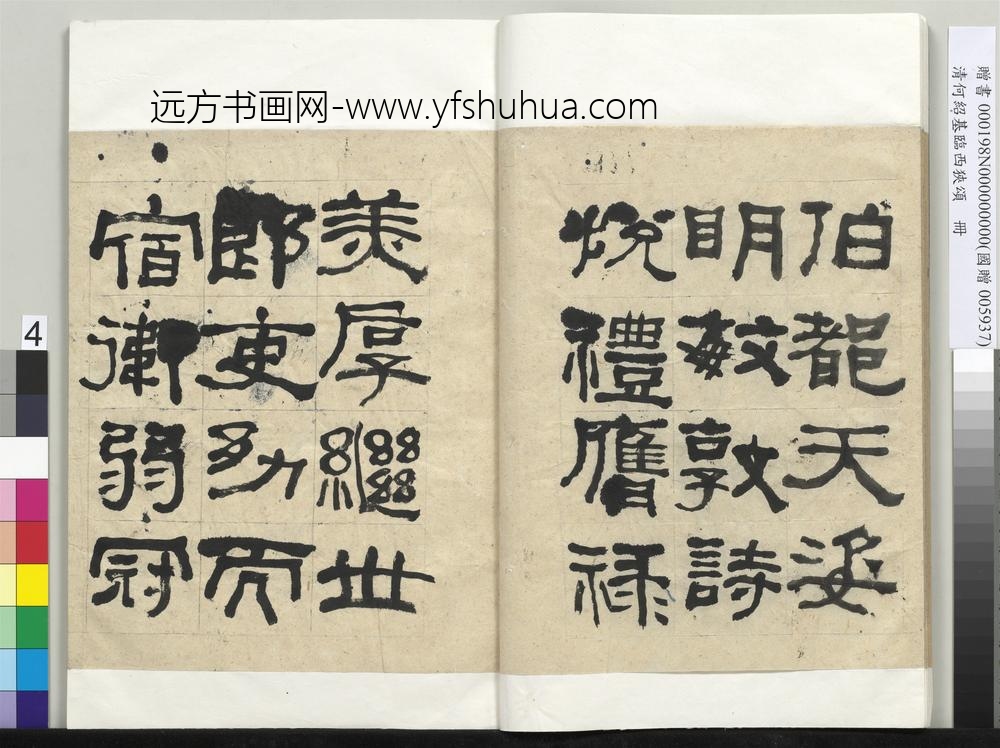 远方书画网-www.yfshuhua.com
伯都天姿
明敏敦詩
悅禮膺祿
美厚繼世
郎吏幼而
宿衛弱冠
贈書 000198N000000000(國贈 005937)
清何紹基臨西狹頌 冊
4